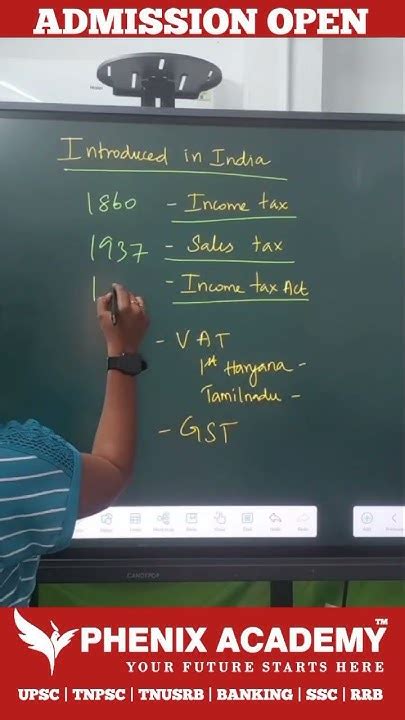 ADMISSION OPEN
Introduced in India
1860 - Income tax
1937 - Sales tax
1 - Income tax Act
- VAT
1st Haryana -
Tamilnadu -
- GST
CANDYPOP
PHENIX ACADEMY™
YOUR FUTURE STARTS HERE
UPSC | TNPSC | TNUSRB | BANKING | SSC | RRB